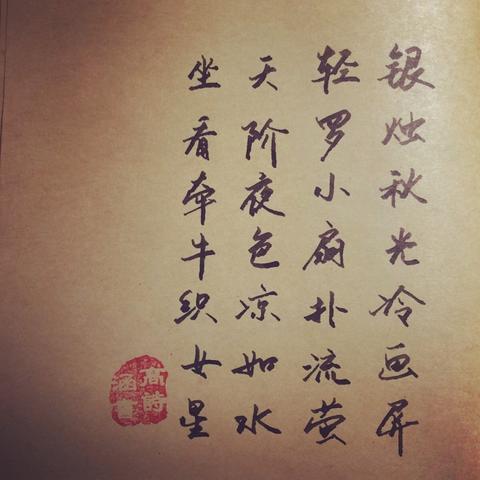 银烛秋光冷画屏
轻罗小扇扑流萤
天阶夜色凉如水
坐看牵牛织女星
高诗
涵书